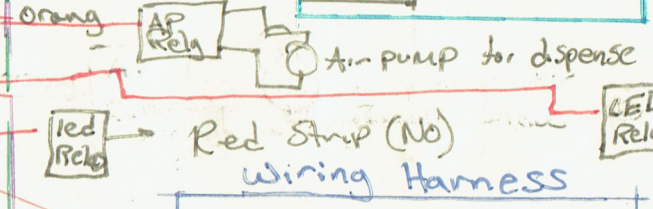 orang
AP
Rely
Air pump for dispense
led
Relo
Red Strip (NO)
LED
Rel
Wiring Harness